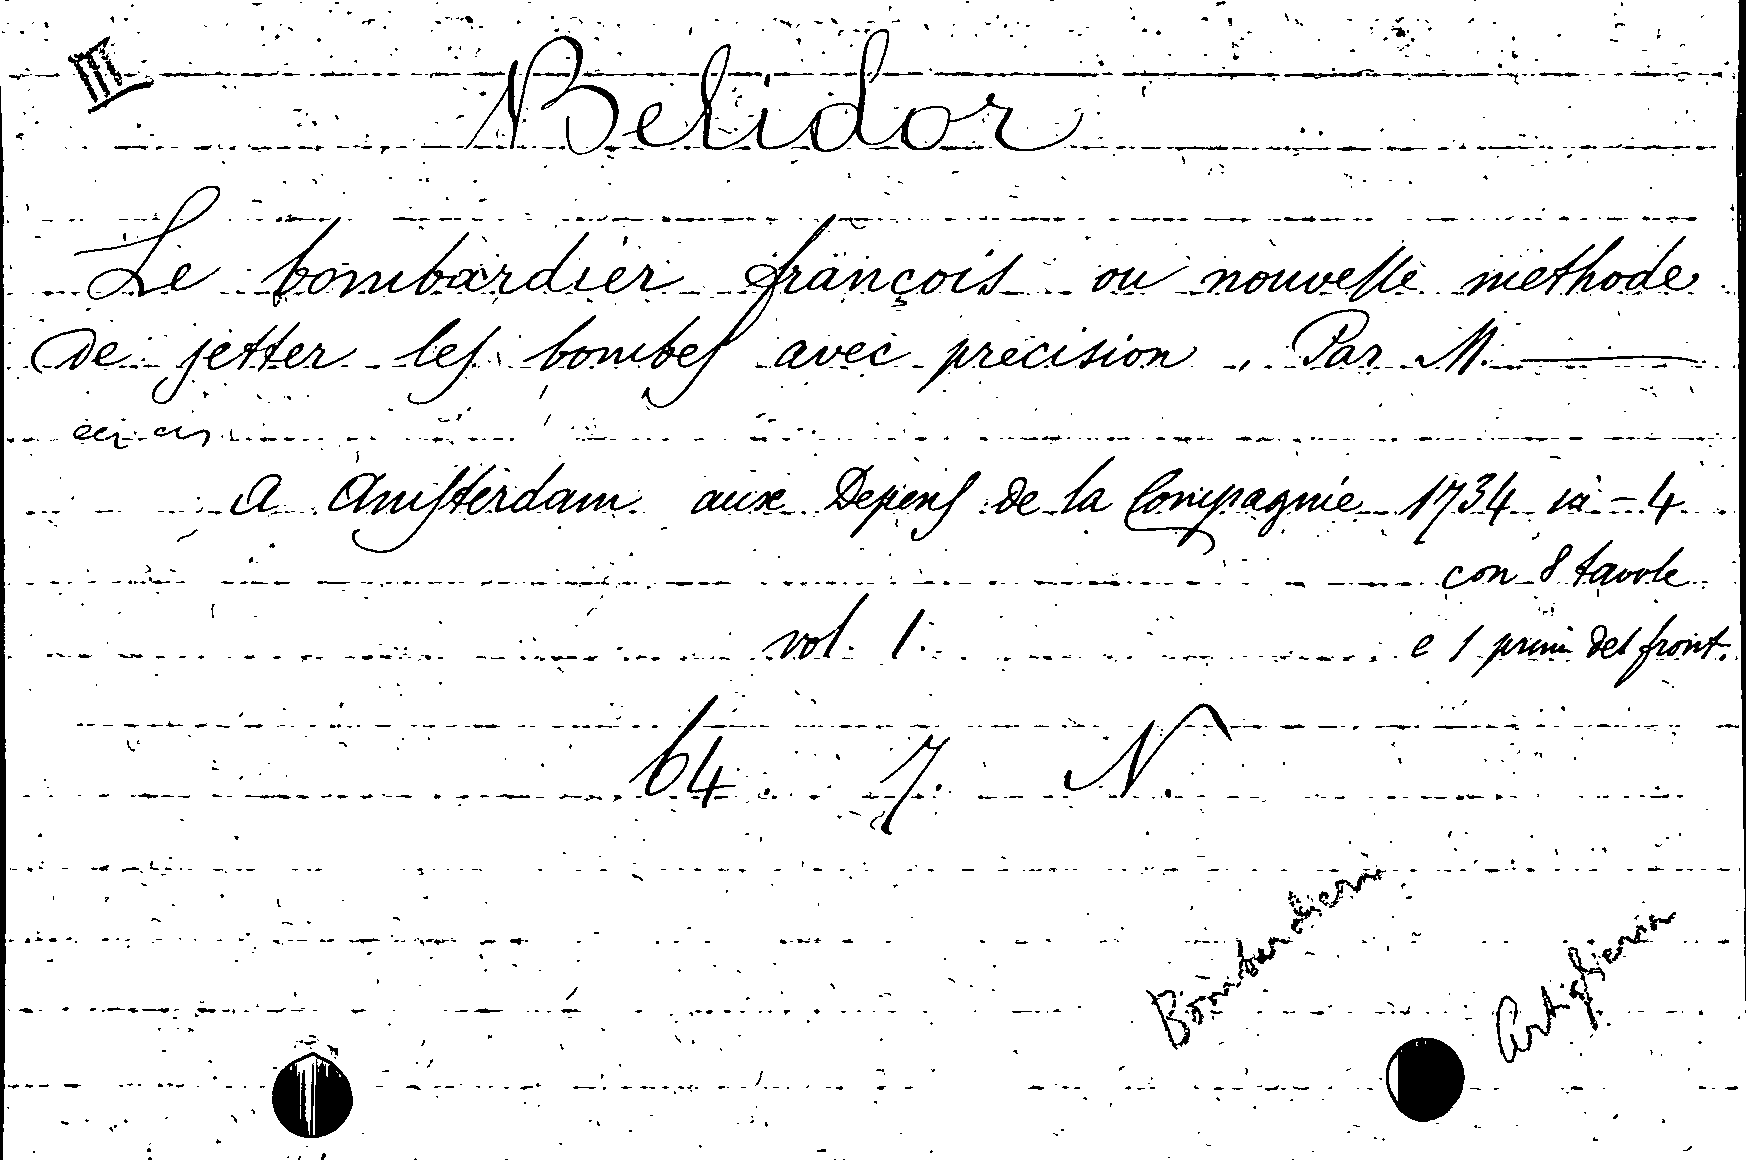 III
Belidor
Le bombardier françois ou nouvelle methode
de jetter les bombes avec precision. Par M. ———
A Amsterdam aux Depens de la Compagnie 1734 in-4
con 8 tavole
vol. 1. e 1 prim del front.
64. 7. N.
Bombardieri
Artiglieria